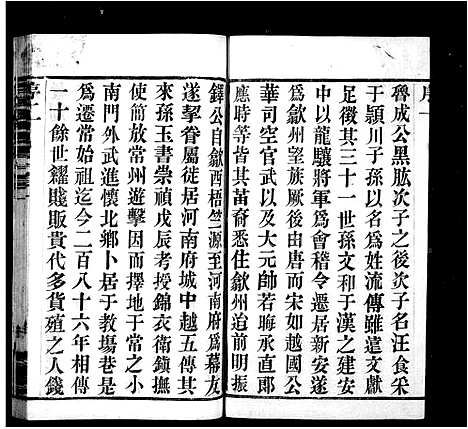 序一
魯成公黑肱次子之後次子名汪食采
于潁川子孫以名爲姓流傳雖遠文獻
足徵其三十一世孫文和于漢之建安
中以龍驤將軍爲會稽令遷居新安遂
爲歙州望族嗣後由唐而宋如越國公
華司空官武以及大元帥若晦承直郎
應時等皆其苗裔悉住歙州迨前明振
鐸公自歙西梧竺源至河南府爲幕友
遂挈眷屬徙居河南府城中越五傳其
來孫玉書崇禎戊辰考授錦衣衛鎮撫
使簡放常州遊擊因而擇地于常之小
南門外武進懷北鄉卜居于教場巷是
爲遷常始祖迄今二百八十六年相傳
一十餘世糴賤販貴代多貨殖之人錢
序二